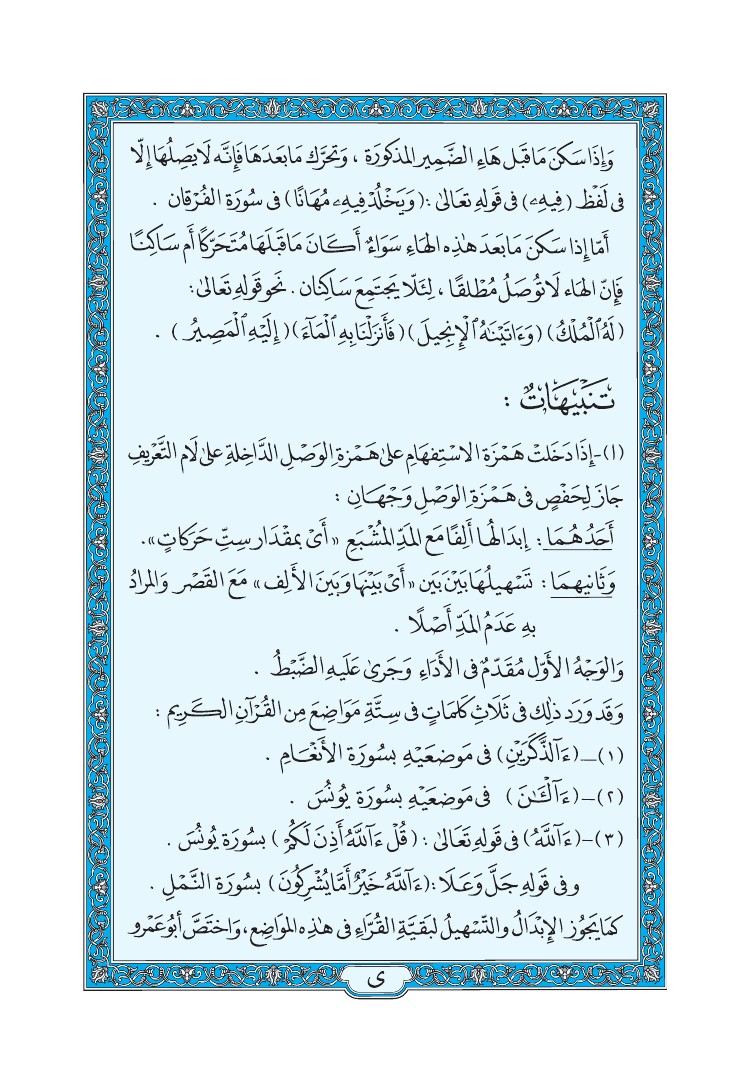 وَإِذَا سَكَنَ مَا قَبْل هَاءِ الضَّمِيرِ المَذكُورَة ، وَتَحَرَّك مَا بَعدَهَا فَإِنَّه لَا يَصِلُهَا إِلَّا
فى لَفْظ (فِيهِۦ) فى قَولِهِ تَعَالىٰ : (وَيَخْلُدْ فِيهِۦ مُهَانًا) فى سُورَة الفُرْقان .
أَمَّا إِذا سَكَنَ مَا بَعدَ هٰذِهِ الهَاءِ سَوَاءٌ أَكَانَ مَا قَبلَهَا مُتَحَرِّكًا أَم سَاكِنًا
فَإِنّ الهَاء لَا تُوصَلُ مُطْلَقًا ، لِئَلَّا يَجتَمِعَ سَاكِنان . نَحو قَولِهِ تعَالىٰ:
(لَهُ ٱلۡمُلۡكُ) (وَءَاتَيۡنَٰهُ ٱلۡإِنجِيلَ) (فَأَنزَلۡنَا بِهِ ٱلۡمَآءَ) (إِلَيۡهِ ٱلۡمَصِيرُ) .
تَنبِيهَاتٌ :
(ا)-إِذَا دَخَلَتْ هَمْزَة الاسْتِفهَامِ عَلىٰ هَمْزةِ الوَصْلِ الدَّاخِلةِ عَلىٰ لَام التَّعْرِيفِ
جَازَ لِحَفْصٍ فى هَمْزَةِ الوَصْلِ وَجْهَانِ :
أَحَدُهُمَا : إِبدَالُها أَلِفًا مَع المَدِّ المُشْبَعِ «أَىْ بِمقْدَار سِتِّ حَرَكاتٍ».
وَثَانِيهمَا : تَسْهِيلُهَا بَيْنَ بَين «أَىْ بَيْنَهَا وَبَينَ الأَلِف» مَعَ القَصْر وَالمرَادُ
بِهِ عَدَمُ المَدِّ أَصْلًا .
وَالوَجْهُ الأَوّل مُقَدَّمٌ فى الأَدَاءِ وَجَرىٰ عَلَيهِ الضَّبْطُ .
وَقَد وَرَد ذٰلِك فى ثَلَاثِ كَلِمَاتٍ فى سِتَّةِ مَوَاضِعَ مِن القُرْآنِ الكَرِيم :
(١)-(ءَآلذَّكَرَيْنِ) فى مَوضعَيْهِ بسُورَة الأَنْعَامِ .
(٢)-(ءَآلۡـَٰٔنَ) فى مَوضعَيْهِ بسُورَة يُونُسَ .
(٣)-(ءَآللَّهُ) فى قَولِهِ تَعَالىٰ : (قُلۡ ءَآللَّهُ أَذِنَ لَكُمۡ) بسُورَة يُونُسَ .
وفى قَولِهِ جَلَّ وَعَلَا :(ءَآللَّهُ خَيۡرٌ أَمَّا يُشۡرِكُونَ) بسُورَة النَّمْلِ .
كمَا يَجُوز الإِبْدَالُ والتَّسْهِيلُ لبَقيَّةِ القُرَّاءِ فى هٰذِهِ المَواضِع، وَاختَصَّ أَبُو عَمْرو
ى